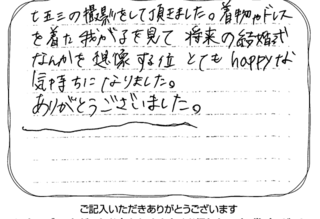 七五三の撮影をして頂きました。着物やドレス
を着た我が子を見て 将来の結婚式
なんかを想像する位 とてもhappyな
気持ちになりました。
ありがとうございました。
ご記入いただきありがとうございます